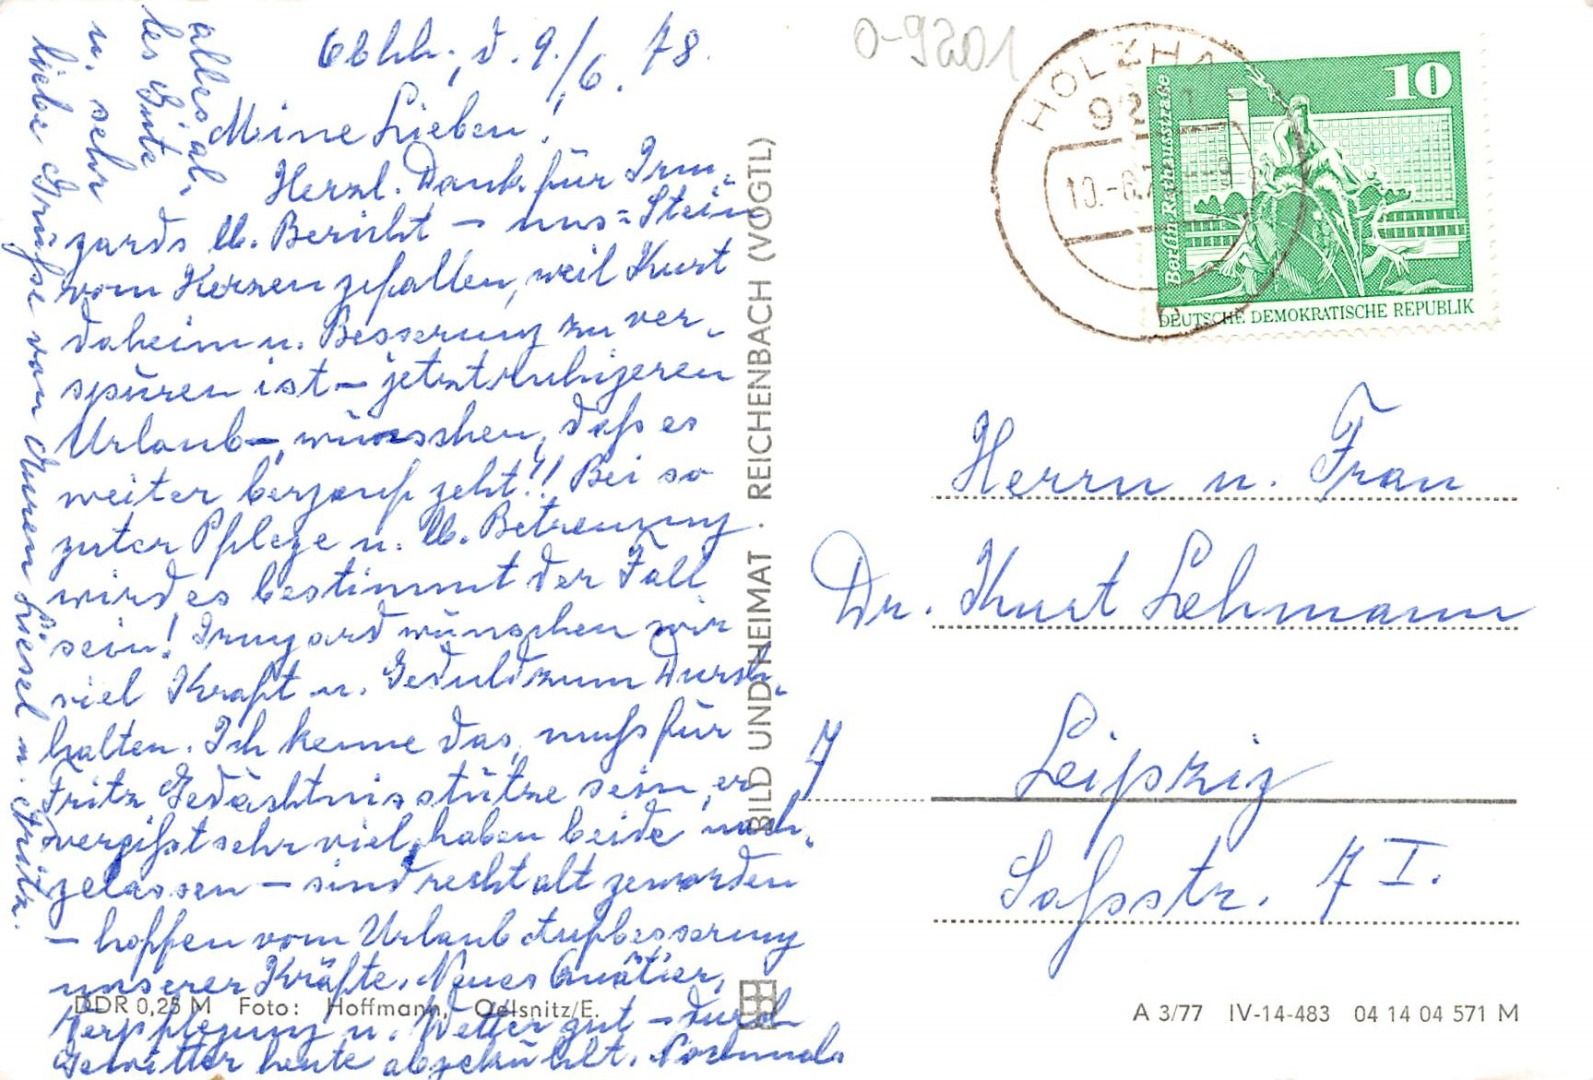 Ebhh., d. 9./6. 78.
Meine Lieben!
Herzl. Dank für Irm-
gards lb. Bericht – uns = Stein
vom Herzen gefallen, weil Kurt
daheim u. Besserung zu ver-
spüren ist – jetzt ruhigeren
Urlaub –, wünschen, daß es
weiter bergauf geht!! Bei so
guter Pflege u. lb. Betreuung
wird es bestimmt der Fall
sein! Irmgard wünschen wir
viel Kraft u. Geduld zum Durch-
halten. Ich kenne das, muß für
Fritz Gedächtnisstütze sein, er
vergißt sehr viel, haben beide nach-
gelassen – sind recht alt geworden
– hoffen vom Urlaub Aufbesserung
unserer Kräfte. Neues Quatier,
Verpflegung u. Wetter gut – durch
Gewitter heute abgekühlt. Nochmals
alles al-
les Gute
u. sehr
liebe Grüße von Euren Liesel u. Fritz.
BILD UND HEIMAT · REICHENBACH (VOGTL)
DDR 0,25 M Foto: Hoffmann, Oelsnitz/E.
O-9201
HOLZHA
10
Berlin, Rathausstraße
DEUTSCHE DEMOKRATISCHE REPUBLIK
Herrn u. Frau
Dr. Kurt Lehmann
7 Leipzig
Saßstr. 7 I.
A 3/77 IV-14-483 04 14 04 571 M